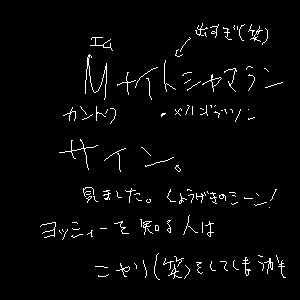 出すぎ(笑)
エム
Mナイトシャマラン
カントク
・メルギブソン
サイン。
見ました。しょうげきのシーン!
ヨッシィーを知る人は
ニヤリ(笑)をしてしまうかも